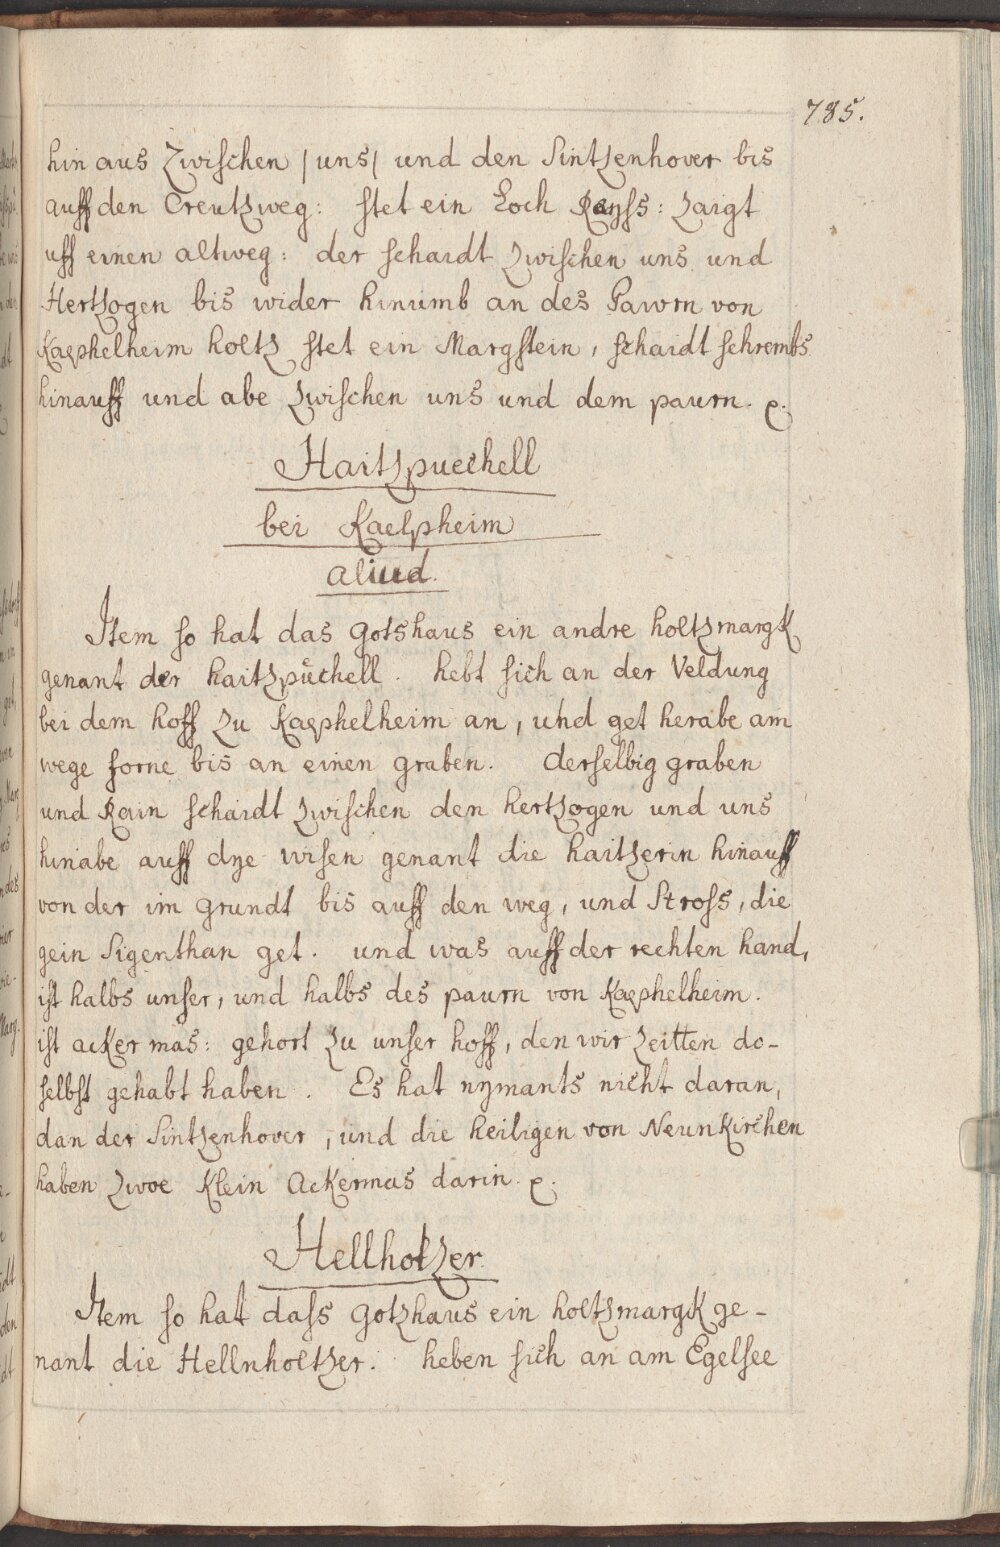 785.
hin aus Zwischen /uns/ und den Sintzenhover bis
auff den Creutzweg: stet ein Loch Rayss: zaigt
uff einen altweg: der schaidt zwischen uns und
Hertzogen bis wider hinumb an des Pawrn von
Kaephelheim holtz stet ein Margstein, schaidt schrembs
hinauff und abe zwischen uns und dem paurn. e.
Haitzpuechell
bei Kaelpheim
aliud.
Item so hat das Gotshaus ein andre holtzmargk
genant der haitzpůchell. hebt sich an der Veldung
bei dem hoff zu Kaephelheim an, und get herabe am
wege forne bis an einen graben. derselbig graben
und Rain schaidt zwischen den hertzogen und uns
hinabe auff dye wisen genant die haitzerin hinauff
von der im grundt bis auff den weg, und Stross, die
gein Sigenthan get. und was auff der rechten hand,
ist halbs unser, und halbs des paurn von Kaephelheim.
ist acker mas: gehort zu unser hoff, den wir zeitten do-
selbst gehabt haben. Es hat nymants nicht daran,
dan der Sintzenhover, und die heiligen von Neunkirchen
haben zwoe klein Ackermas darin. e.
Hellholtzer.
Item so hat dass Gotzhaus ein holtzmargk ge-
nant die Hellnholtzer. heben sich an am Egelsee